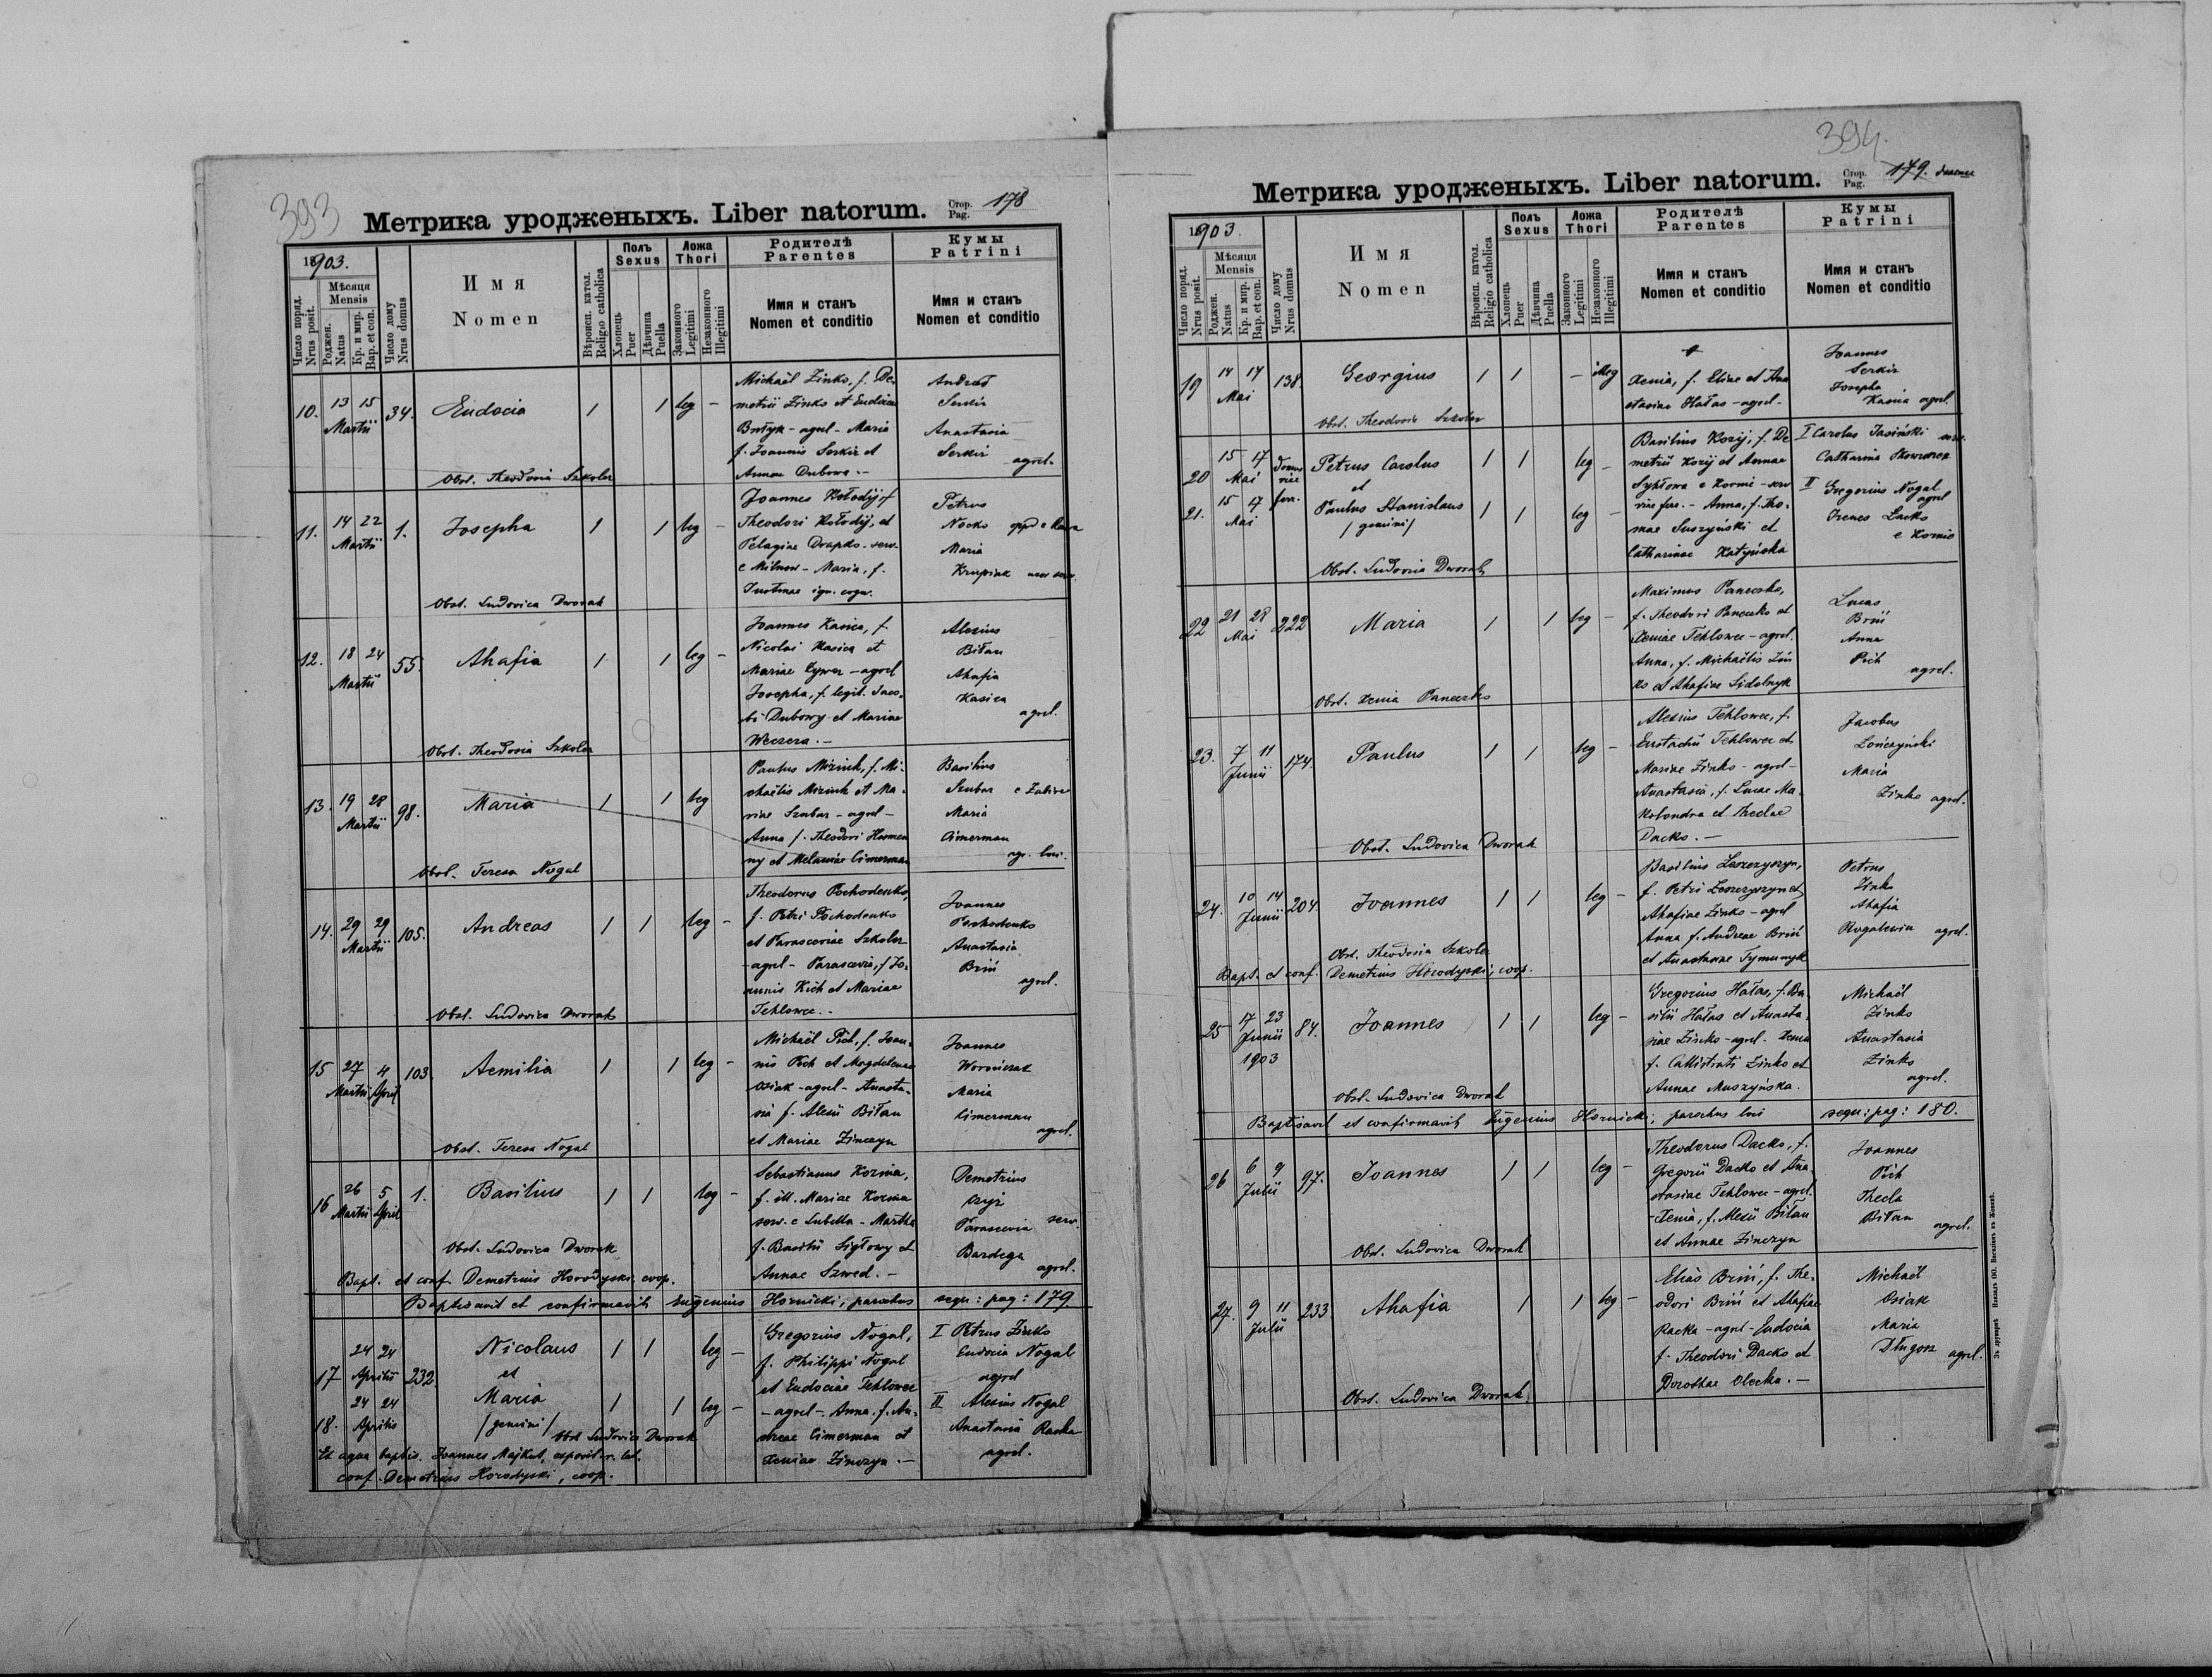 393
Метрика уродженыхъ. Liber natorum.
Стор. Pag. 178
1903.
Число поряд. Nrus posit.
Мѣсяця Mensis
Роджен. Natus
Кр. и мир. Bap. et con.
Число дому Nrus domus
Имя
Nomen
Вѣроисп. катол. Religio catholica
Полъ Sexus
Хлопець Puer
Дѣвчина Puella
Ложа Thori
Законного Legitimi
Незаконного Illegitimi
Родителѣ Parentes
Имя и станъ
Nomen et conditio
Кумы Patrini
Имя и станъ
Nomen et conditio
10. 13 15 Martii 34. Eudocia 1 1 leg -
Michaël Zinko, f. De-
metrii Zinko et Eudociae
- agrel - Maria
f. Joannis Serkiz et
Annae Dubowa. -
Serkiz
Anastasia
Serkiz
agrel.
Obst. Theodosia Szkoler
11. 14 22 Martii 1. Josepha 1 1 leg -
Joannes Kołodij f
Theodori Kołodij, et
Pelagiae Drapko - serv.
e Milnow - Maria, f.
Justinae ign. cogn.
Petrus
Nocko
Maria
Krupiak
Obst. Ludovica Dworak
12. 18 24 Martii 55. Ahafia 1 1 leg -
Joannes Kasica, f.
Nicolai Kasica et
Mariae - agrel
Josepha, f. legit. Jaco-
bi Dubowy et Mariae
Weczera. -
Alexius
Biłan
Ahafia
Kasica
agrel.
Obst. Theodosia Szkoler
13. 19 28 Martii 98. Maria 1 1 leg
Paulus Miziuk, f. Mi-
chaëlis Miziuk et Ma-
riae Szubar - agrel -
Anna f. Theodori
ny et Melaniae Cimerman
Basilius
Szubar
Maria
Cimerman
Obst. Teresa Nogal
14. 29 29 Martii 105. Andreas 1 1 leg -
Theodorus Pochodenko,
f. Petri Pochodenko
et Parasceviae Szkoler
- agrel - Parascevia, f Jo-
annis Kich et Mariae
Tehlowec. -
Joannes
Pochodenko
Anastasia
Briń
agrel.
Obst. Ludovica Dworak
15 27 4 Martii April 103 Aemilia 1 1 leg -
Michaël Pich, f. Joan-
nis Pich et Magdalenae
Osiak - agrel - Anasta-
sia f. Alexii Biłan
et Mariae Zinczyn
Joannes
Maria
Cimerman
agrel.
Obst. Teresa Nogal
16 26 5 Martii April 1. Basilius 1 1 leg -
Sebastianus Kozina,
f. ill. Mariae Kozina
serv. e Lubella - Martha
f. Basilii et
Annae Szwed. -
Demetrius
Parascevia serv.
Bardega
agrel.
Obst. Ludovica Dworak
Bapt. et conf. Demetrius Horodyski, coop.
Baptisavit et confirmavit Eugenius Hornicki, parochus sequ: pag: 179
17 24 24 Aprilis 232. Nicolaus 1 1 leg -
et
18. 24 24 Aprilis Maria 1 1 leg -
/gemini/
Gregorius Nogal,
f. Philippi Nogal
et Eudociae Tehlowec
- agrel - Anna, f. An-
dreae Cimerman et
Xeniae Zinczyn. -
I Petrus Zinko
Eudocia Nogal
agrel
II Alexius Nogal
Anastasia Racka
agrel.
Obst Ludovica Dworak
Ex aqua baptis. Joannes Majkut, exposit. r. lat.
conf. Demetrius Horodyski, coop.
394.
Метрика уродженыхъ. Liber natorum.
Стор. Pag. 179.
1903.
Число поряд. Nrus posit.
Мѣсяця Mensis
Роджен. Natus
Кр. и мир. Bap. et con.
Число дому Nrus domus
Имя
Nomen
Вѣроисп. катол. Religio catholica
Полъ Sexus
Хлопець Puer
Дѣвчина Puella
Ложа Thori
Законного Legitimi
Незаконного Illegitimi
Родителѣ Parentes
Имя и станъ
Nomen et conditio
Кумы Patrini
Имя и станъ
Nomen et conditio
19 14 17 Mai 138. Georgius 1 1 - illeg
Xenia, f. Eliae et Ana
stasiae Hałas - agrel -
Joannes
Serkiz
Josepha
Kasica agrel.
Obst. Theodosia Szkoler
20 15 17 Mai Petrus Carolus 1 1 leg -
et
21. 15 17 Mai Paulus Stanislaus 1 1 leg -
/gemini/
Basilius Kozij, f. De
metrii Kozij et Annae
e Kornie - serv
viae ferr. - Anna, f. Tho-
mae Suszyński et
Catharinae
I Carolus Jasiński
Catharina
II Gregorius Nogal
agrel
Irenes Lacko
e Kornie
Obst. Ludovica Dworak
22 21 28 Mai 222 Maria 1 1 leg -
Maximus Paneczko,
f. Theodori Paneczko et
Xeniae Tehlowec - agrel.
Anna, f. Michaëlis Zin
ko et Ahafiae Sidelnyk
Lucas
Briń
Anna
Pich
agrel.
Obst. Xenia Paneczko
23. 7 11 Junii 174. Paulus 1 1 leg -
Alexius Tehlowec, f.
Eustachii Tehlowec et
Mariae Zinko - agrel -
Anastasia, f. Lucae Ma-
kolondra et Theclae
Dacko. -
Jacobus
Lończyński
Maria
Zinko agrel.
Obst. Ludovica Dworak
24. 10 14 Junii 204. Joannes 1 1 leg -
Basilius Leszczyszyn,
f. Petri Leszczyszyn et
Ahafiae Zinko - agrel
Anna f. Andreae Briń
et Anastasiae Tymunyk
Petrus
Zinko
Ahafia
Rogalewin agrel.
Obst. Theodosia Szkoler
Bapt. et conf. Demetrius Horodyski, coop.
25 17 23 Junii 1903 84. Joannes 1 1 leg -
Gregorius Hałas, f. Ba-
silii Hałas et Anasta-
siae Zinko - agrel. Xenia
f. Callistrati Zinko et
Annae Muszyńska.
Michaël
Zinko
Anastasia
Zinko
agrel.
Obst. Ludovica Dworak
Baptisavit et confirmavit Eugenius Hornicki, parochus loci sequ: pag: 180.
26 6 9 Julii 97. Joannes 1 1 leg -
Theodorus Dacko, f.
Gregorii Dacko et Ana-
stasiae Tehlowec - agrel.
- Xenia, f. Alexii Biłan
et Annae Zinczyn
Joannes
Pich
Thecla
Biłan
agrel.
Obst. Ludovica Dworak
27. 9 11 Julii 233. Ahafia 1 1 leg -
Elias Briń, f. The-
odori Briń et Ahafiae
Racka - agrel - Eudocia
f. Theodori Dacko et
Dorotheae Olecka. -
Michaël
Osiak
Maria
Długosz agrel.
Obst. Ludovica Dworak
Зъ друкарнѣ Накладъ ОО. Василіянъ въ Жовквѣ.